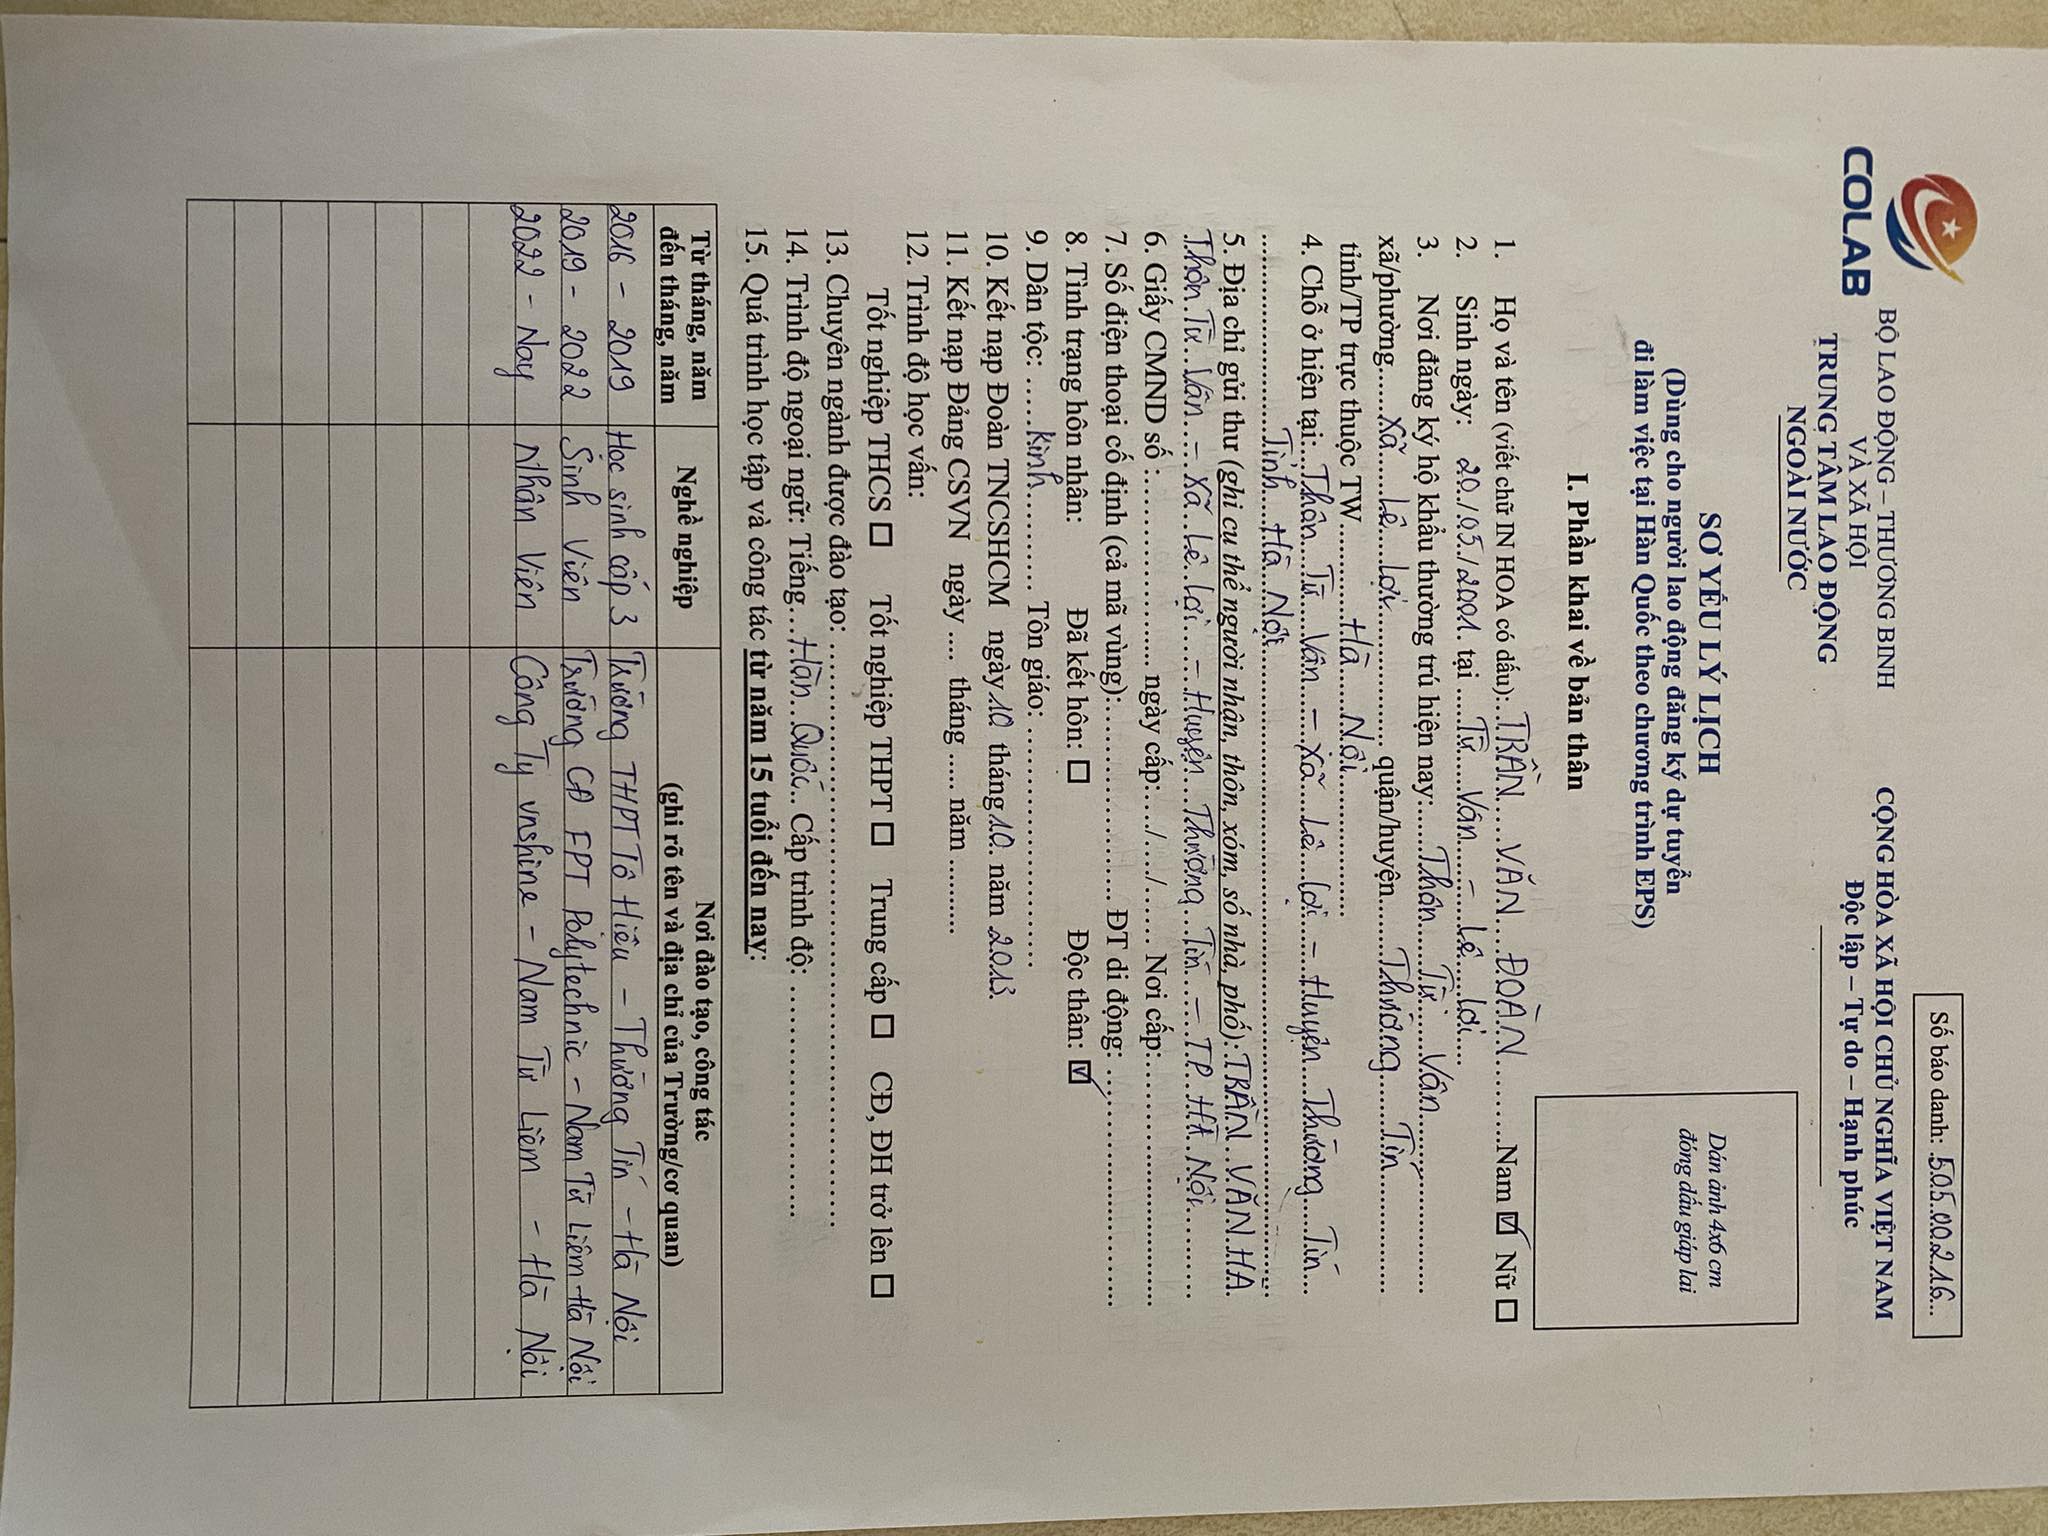 Số báo danh: 505.00216
COLAB
BỘ LAO ĐỘNG – THƯƠNG BINH
VÀ XÃ HỘI
TRUNG TÂM LAO ĐỘNG
NGOÀI NƯỚC
CỘNG HÒA XÃ HỘI CHỦ NGHĨA VIỆT NAM
Độc lập – Tự do – Hạnh phúc
SƠ YẾU LÝ LỊCH
(Dùng cho người lao động đăng ký dự tuyển
đi làm việc tại Hàn Quốc theo chương trình EPS)
Dán ảnh 4x6 cm
đóng dấu giáp lai
I. Phần khai về bản thân
1. Họ và tên (viết chữ IN HOA có dấu): TRẦN VĂN ĐOÀN Nam ☑ Nữ ☐
2. Sinh ngày: 20/05/2001 tại Từ Vân – Lê Lợi
3. Nơi đăng ký hộ khẩu thường trú hiện nay: Thôn Từ Vân
xã/phường xã Lê Lợi quận/huyện Thường Tín
tỉnh/TP trực thuộc TW Hà Nội
4. Chỗ ở hiện tại: Thôn Từ Vân – xã Lê Lợi – Huyện Thường Tín
Tỉnh Hà Nội
5. Địa chỉ gửi thư (ghi cụ thể người nhận, thôn, xóm, số nhà, phố): TRẦN VĂN HA
Thôn Từ Vân – xã Lê Lợi – Huyện Thường Tín – TP Hà Nội
6. Giấy CMND số : ngày cấp: / / Nơi cấp:
7. Số điện thoại cố định (cả mã vùng): ĐT di động:
8. Tình trạng hôn nhân: Đã kết hôn: ☐ Độc thân: ☑
9. Dân tộc: Kinh Tôn giáo:
10. Kết nạp Đoàn TNCSHCM ngày 10 tháng 10 năm 2013
11. Kết nạp Đảng CSVN ngày .... tháng ..... năm .........
12. Trình độ học vấn:
Tốt nghiệp THCS ☐ Tốt nghiệp THPT ☐ Trung cấp ☐ CĐ, ĐH trở lên ☐
13. Chuyên ngành được đào tạo:
14. Trình độ ngoại ngữ: Tiếng Hàn Quốc Cấp trình độ:
15. Quá trình học tập và công tác từ năm 15 tuổi đến nay:
Từ tháng, năm đến tháng, năm Nghề nghiệp Nơi đào tạo, công tác (ghi rõ tên và địa chỉ của Trường/cơ quan)
2016 – 2019 Học sinh cấp 3 Trường THPT Tô Hiệu – Thường Tín – Hà Nội
2019 – 2022 Sinh Viên Trường CĐ FPT Polytechnic – Nam Từ Liêm – Hà Nội
2022 – Nay Nhân Viên Công Ty vnshine – Nam Từ Liêm – Hà Nội